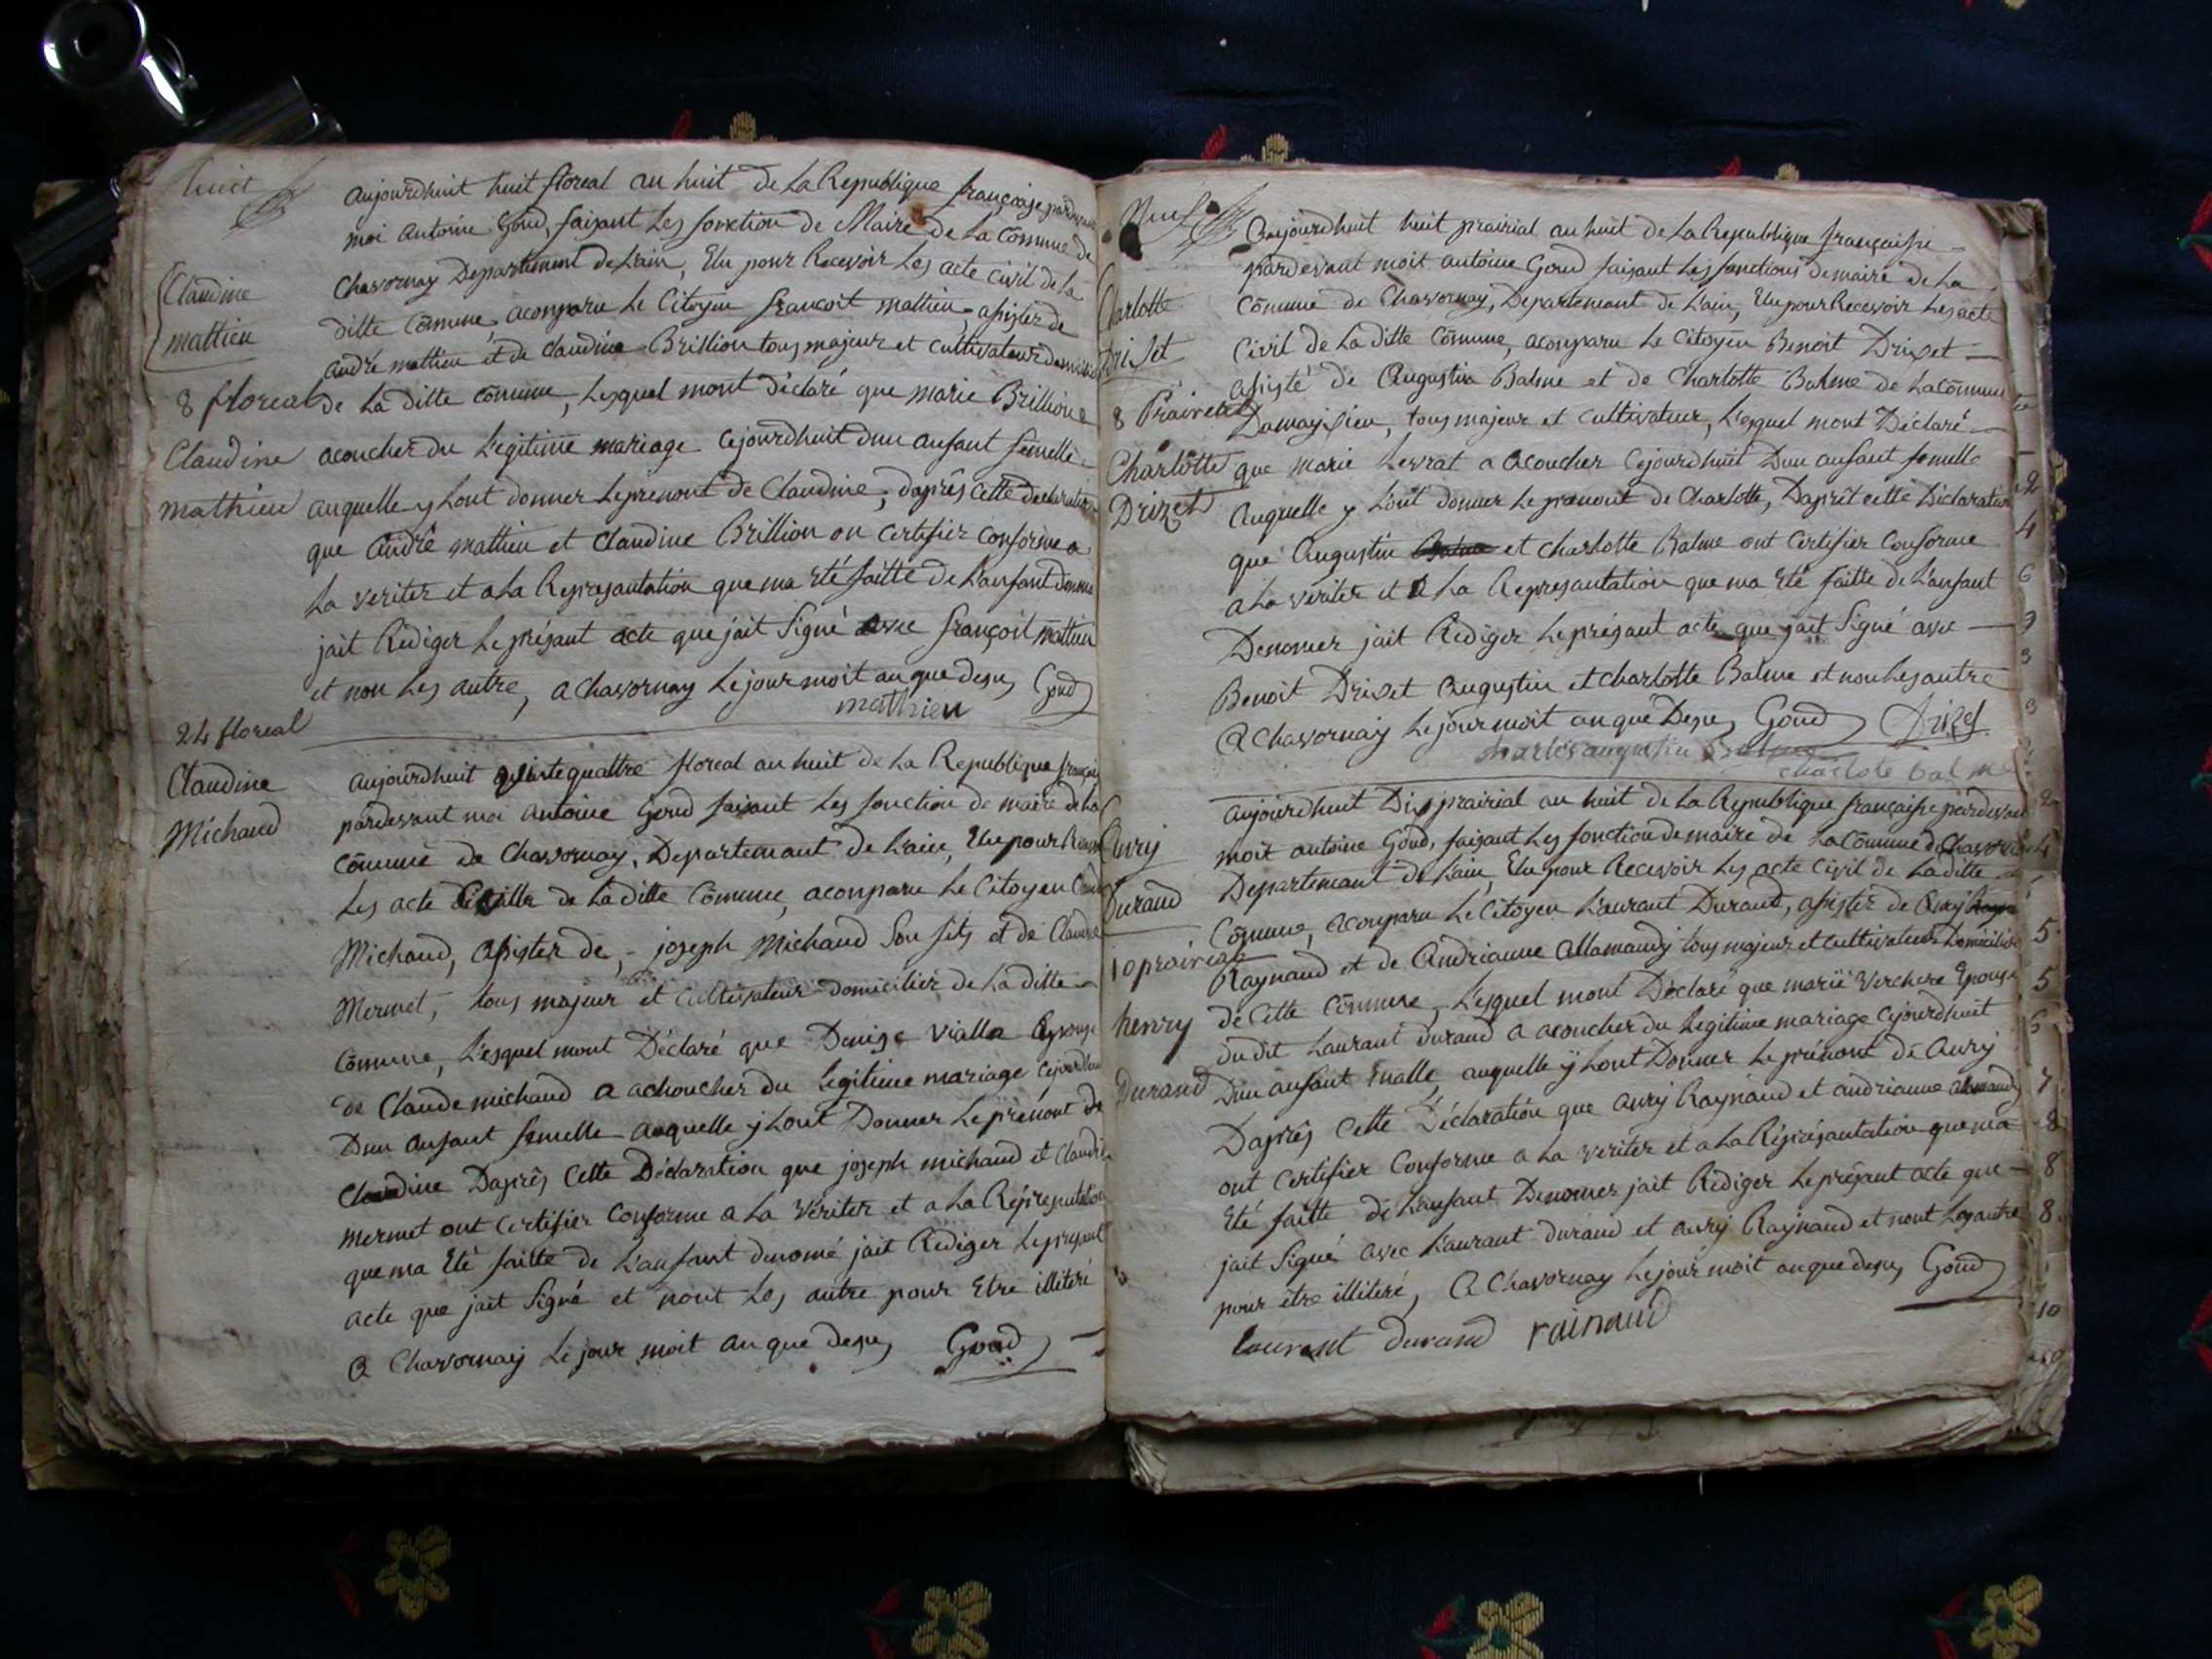 huit
aujourdhuit huit floreal an huit de La Republique françaisse pardevant
moi antoine Goud faisant Les fonction de Maire de La Cômmune de
Claudine
mattieu
Chavornay Departement de L'ain, Elu pour Recevoir Les acte civil de la
ditte Cômmune, aconparu Le Citoyen françoit mattieu, asister de
andré mattieu et de Claudine Brillion tous majeur et Cultivateur
8 floreal
de La ditte cômmune, Lesquel mont déclaré que marie Brillion a
Claudine
acoucher du Legitime mariage cejourdhuit dun anfant femelle
mathieu
auquelle y Lont donner Leprenont de Claudine, daprès cette declaration
que andré mattieu et Claudine Brillion on Certifier Conforme a
La veriter et a La Represantation que ma Eté faitte de L'anfant
jait Rédiger Le présant acte que jait Signé avec françoit mattieu
et non Les autre, a Chavornay Lejour moit an que desus Goud
mathieu
24 floreal
Claudine
Michaud
aujourdhuit quattre floreal an huit de La Republique
pardevant moi antoine Goud faisant Les fonction de maire de la
Cômmune de Chavornay, Departemant de L'ain, Elu pour
Les acte de La ditte Cômmune, aconparu Le Citoyen
Michaud, asister de, - joseph Michaud Son fils et de
Mermet, tous majeur et Cultivateur domicilier de La ditte
Cômmune, Lesquel mont Déclaré que Denise vialla Epouse
de Claude michaud a achoucher du Legitime mariage
Dun anfant femelle auquelle y Lont Donner Le prénont de
Claudine Daprês Cette Déclaration que joseph michaud et
mermet ont Certifier Conforme a La vériter et a La
que ma Eté faitte de L'anfant denomé jait Rediger Le presant
acte que jait Signé et nont Les autre pour Etre illiteré
a Chavornay Le jour moit an que desus Goud
Neuf
aujourdhuit huit prairial an huit de La Republique françaisse
pardevant moit antoine Goud faisant Les fonctions de maire de La
Charlotte
Driset
Cômmune de Chavornay, Departemant de L'ain, Elu pour Recevoir Les acte
Civil de La ditte Cômmune, aconparu Le Citoyen Benoit Driset
asisté de Augustin Balme et de Charlotte Balme de La Cômmune
8 Prairial
tous majeur et Cultivateur, Lesquel mont Déclaré
Charlotte
que marie Levrat a acoucher cejourdhuit Dun anfant femelle
Drizet
auquelle y Lont donner Le prenont de Charlotte, Daprêt cette Déclaration
que Augustin Balme et Charlotte Balme ont Certifier Conforme
a La veriter et a La Represantation que ma Eté faitte de L'anfant
Denomer jait Rediger Le présant acte que jait Signé avec
Benoit Driset Augustin et Charlotte Balme et non Les autre
a Chavornay Le jour moit an que Desus Goud Drizet
charles augustin Balme
charlote balme
aujourdhuit Dix prairial an huit de La Republique françaisse pardevant
moit antoine Goud, faisant Les fonction de maire de La Cômmune de Chavornay
Anry
Durand
Departemant de L'ain, Elu pour Recevoir Les acte Civil de La ditte
Cômmune, aconparu Le Citoyen Laurant Durand, asister de Anry
10 prairial
Raynaud et de Andrianne allamandy tous majeur et Cultivateur Domicilier
henry
de Cette Cômmune, Lesquel mont Déclaré que marie Verchere Epouse
du dit Laurant Durand a acoucher du Legitime mariage cejourdhuit
Durand
Dun anfant malle, auquelle y Lont Donner Le prénont de Anry
Daprês Cette Déclaration que anry Raynaud et andrianne alamandy
ont Certifier Conforme a La veriter et a La Réprésantation que ma
Eté faitte de L'anfant Denomer jait Rediger Le présant acte que
jait Signé avec Laurant durand et anry Raynaud et nont Les autre
pour être illiteré, a Chavornay Le jour moit an que desus Goud
laurent durand rainaud